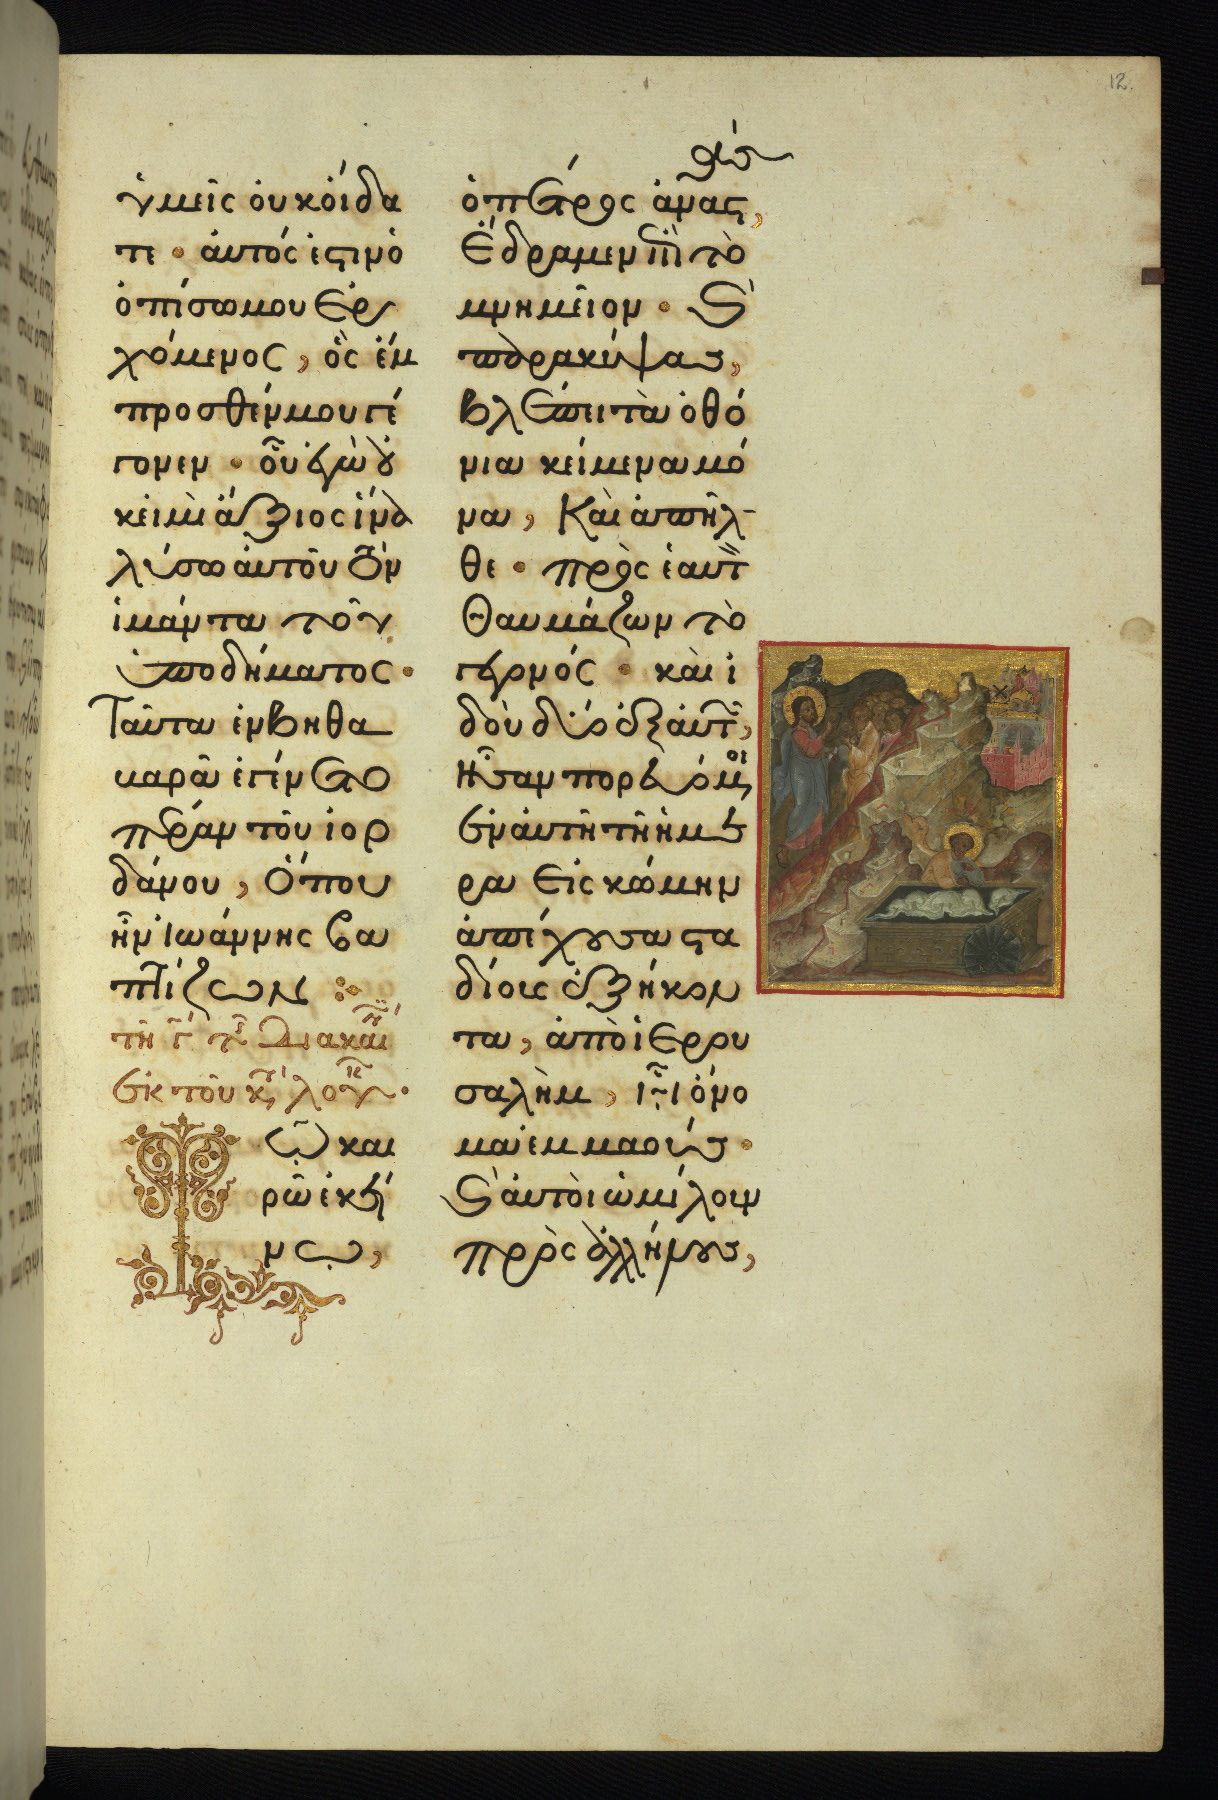 12.
ὑμεῖς ὀυκ ὀίδα
τε · ἀυτός ἐστιν ὁ
ὀπίσω μου ἐρ
χόμενος, ὃς ἔμ
προσθέν μου γέ
γονεν · οὗ ἐγὼ ὀυ
κ εἰμὶ ἄξιος ἵνα
λύσω ἀυτοῦ τὸν
ἱμάντα τοῦ ὑ
ποδήματος ·
Ταῦτα ἐν βηθα
βαρᾶ ἐγένετο
πέραν τοῦ ἰορ
δάνου, ὅπου
ἦν ἰωάννης βα
πτίζων
τῆ γ τῆς διακαι
ἐκ τοῦ κατὰ λουκ ·
Τῶ και
ρῶ ἐκεί
νω,
ὁ πέτρος ἀναστὰς,
ἔδραμεν ἐπὶ τὸ
μνημεῖον · καὶ
παρακύψας,
βλέπει τὰ ὀθό
νια κείμενα μό
να, καὶ ἀπῆλ
θε · πρὸς ἑαυτὸν
θαυμάζων τὸ
γεγονός · καὶ ἰ
δοὺ δύο ἐξ ἀυτῶν,
ἦσαν πορευόμενοι
ἐν ἀυτῆ τῆ ἡμέ
ρα εἰς κώμην
ἀπέχουσαν στα
δίους ἐξήκον
τα, ἀπὸ ἱερου
σαλὴμ, ἧ ὄνο
μα ἐμμαούς ·
καὶ ἀυτοὶ ὡμίλουν
πρὸς ἀλλήλους,